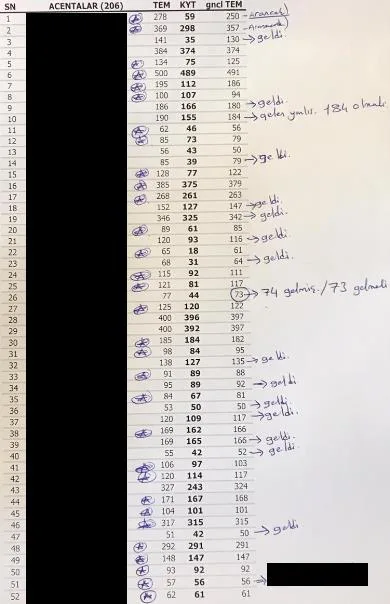 SN ACENTALAR (206) TEM KYT gncl TEM
1 A 278 59 250 → aranacak)
2 A 369 298 357
3 141 35 130 → geldi
4 384 374 374
5 A 134 75 125
6 A 500 489 491
7 A 195 112 186
8 A 100 107 94
9 186 166 180 → geldi.
10 190 155 184 → gelen yanlış. 184 olmalı
11 A 62 46 56
12 A 85 73 79
13 56 43 50
14 85 39 79 → geldi.
15 A 128 77 122
16 A 385 375 379
17 A 268 261 263
18 152 127 147 → geldi.
19 346 325 342 → geldi.
20 A 89 61 85
21 120 93 116 → geldi.
22 A 65 18 61
23 68 31 64 → geldi.
24 A 115 92 111
25 A 121 81 117
26 77 44 73 → 74 gelmiş. / 73 gelmeli
27 A 125 120 122
28 400 396 397
29 400 392 397
30 A 185 184 182
31 A 98 84 95
32 138 127 135 → geldi.
33 A 91 89 88
34 95 89 92 → geldi
35 A 84 67 81
36 53 50 50 → geldi.
37 120 109 117 → geldi.
38 A 169 162 166
39 169 165 166 → geldi.
40 55 42 52 → geldi.
41 A 106 97 103
42 A 120 114 117
43 327 243 324
44 A 171 167 168
45 A 104 101 101
46 A 317 315 315
47 51 42 50 → geldi
48 A 292 291 291
49 A 148 147 147
50 A 93 92 92
51 A 57 56 56 →
52 A 62 61 61